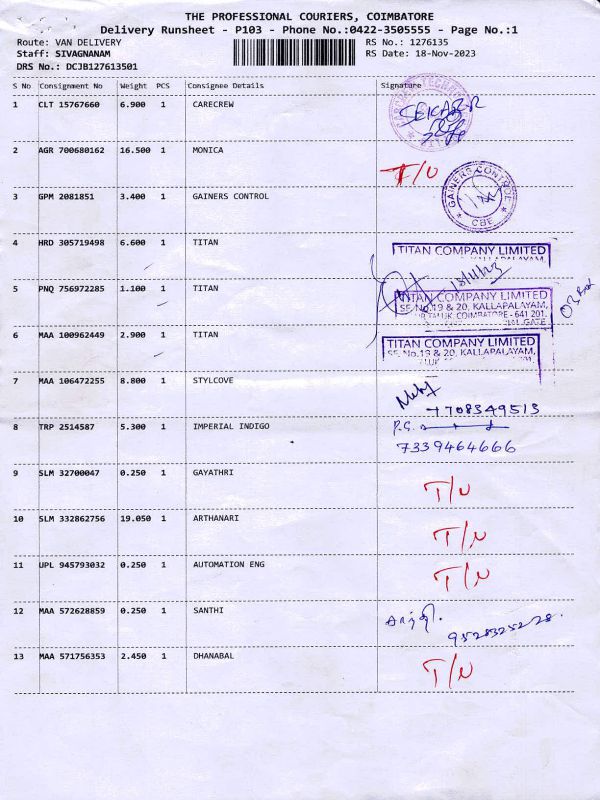 THE PROFESSIONAL COURIERS, COIMBATORE
Delivery Runsheet - P103 - Phone No.:0422-3505555 - Page No.:1
Route: VAN DELIVERY RS No.: 1276135
Staff: SIVAGNANAM RS Date: 18-Nov-2023
DRS No.: DCJB127613501
S No Consignment No Weight PCS Consignee Details Signature
1 CLT 15767660 6.900 1 CARECREW
2 AGR 700680162 16.500 1 MONICA T/U
3 GPM 2081851 3.400 1 GAINERS CONTROL GAINERS CONTROL CBE
4 HRD 305719498 6.600 1 TITAN TITAN COMPANY LIMITED
18/11/23
5 PNQ 756972285 1.100 1 TITAN TITAN COMPANY LIMITED
SF. No.19 & 20, KALLAPALAYAM,
COIMBATORE - 641 201.
6 MAA 100962449 2.900 1 TITAN TITAN COMPANY LIMITED
SF. No.19 & 20, KALLAPALAYAM,
7 MAA 106472255 8.800 1 STYLCOVE
7708349513
8 TRP 2514587 5.300 1 IMPERIAL INDIGO
7339464666
9 SLM 32700047 0.250 1 GAYATHRI T/U
10 SLM 332862756 19.050 1 ARTHANARI T/U
11 UPL 945793032 0.250 1 AUTOMATION ENG T/U
12 MAA 572628859 0.250 1 SANTHI
9528325228
13 MAA 571756353 2.450 1 DHANABAL T/U